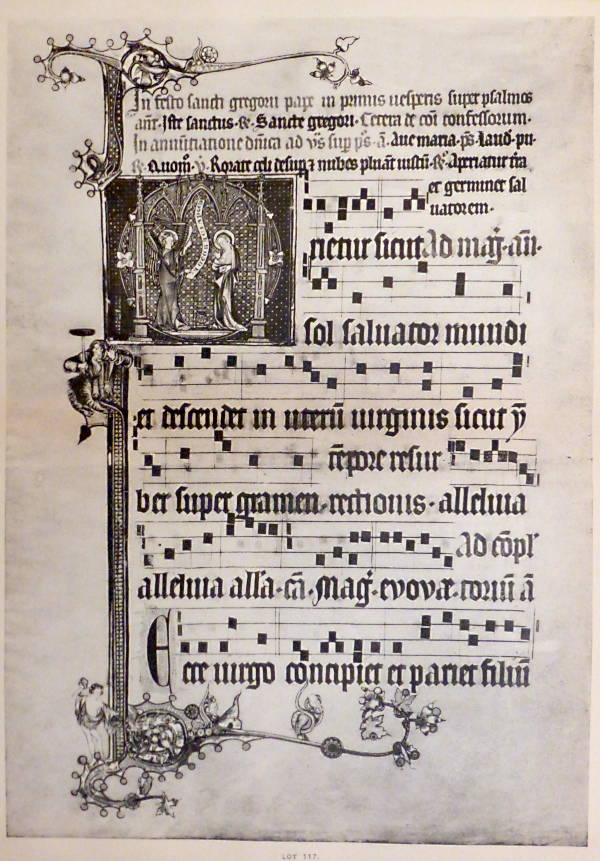 In festo sancti gregorii pape in primis uesperis super psalmos
añt. Iste sanctus. R. Sancte gregori. Cetera de cõi confessorum.
In annũtiatione dñica ad vs̃ sup ps̃. ã. Aue maria. ps̃. Laud. pu.
R. Quoḿ. v. Rorate celi desup ⁊ nubes pluant iustũ. R. Aperiatur ťra
et germinet sal
uatorem.
rietur sicut Ad mag̃. añ.
sol saluator mundi
et descendet in uterũ uirginis sicut ẏ
tẽpore resur
ber super gramen. rectionis. alleluia
Ad cõpl̃
alleluia all'a. cã. Mag̃. evovæ. toriũ ã
Ecce uirgo concipiet et pariet filiũ
LOT 117.